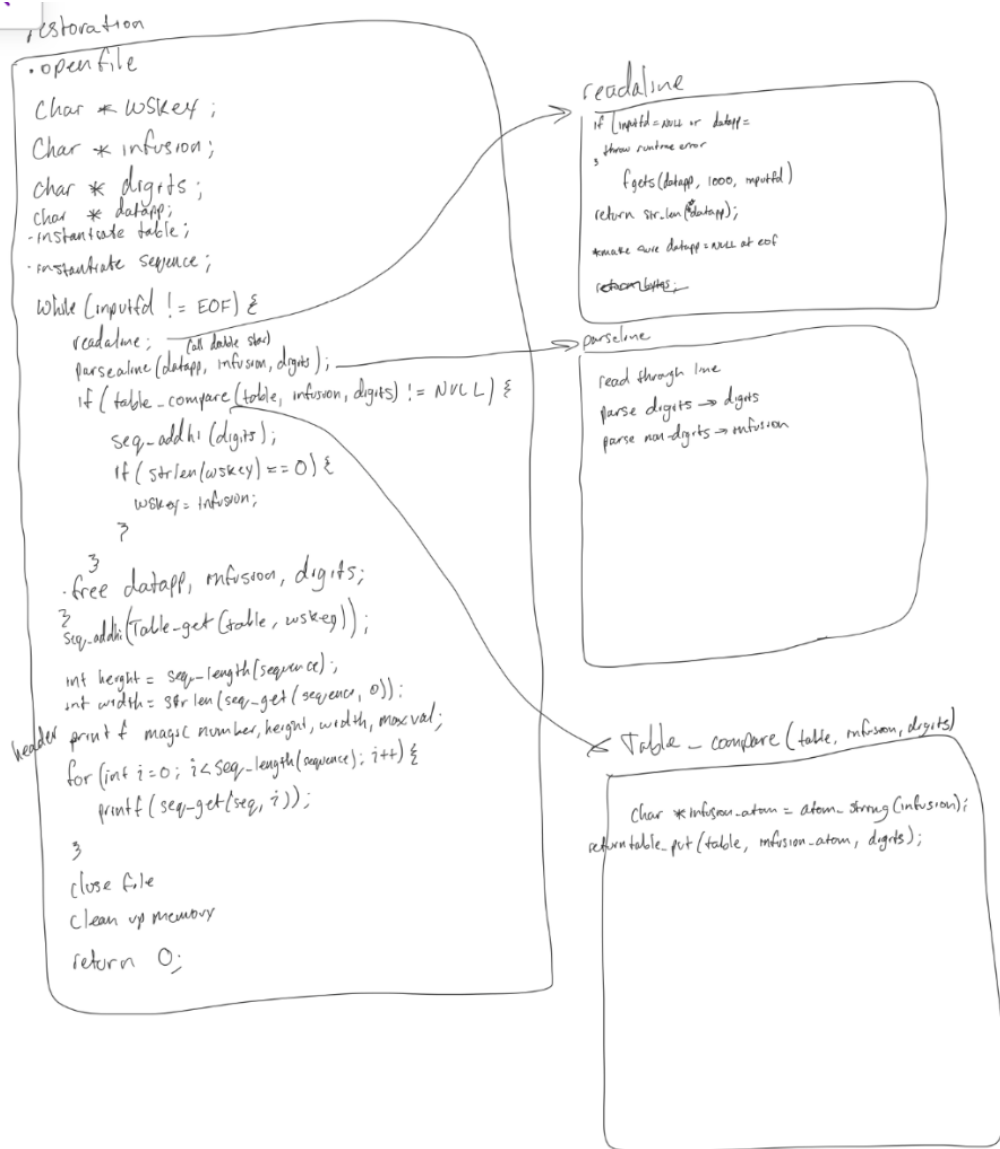 restoration
· openfile
Char * wskey ;
Char * infusion;
char * digits ;
char * datapp;
· instantiate table;
· instantiate sequence ;
while (inputfd != EOF) {
readaline; (all double star)
parsealine (datapp, infusion, digits) ;
if ( table_compare (table, infusion, digits) != NULL) {
seq-addhi (digits);
if ( strlen(wskey) == 0) {
wskey = infusion;
}
}
· free datapp, infusion, digits;
}
seq-addhi (Table-get (table, wskey)) ;
int height = seq-length (sequence) ;
int width = strlen (seq-get (sequence, 0)) ;
header printf magic number, height, width, maxval;
for (int i=0; i<seq-length(sequence); i++) {
printf (seq-get(seq, i));
}
close file
clean up memory
return 0;
readaline
if (inputfd = NULL or datapp =
throw runtime error
}
fgets (datapp, 1000, inputfd)
return str.len (*datapp);
*make sure datapp = NULL at eof
return bytes;
parseline
read through line
parse digits → digits
parse non-digits → infusion
Table _ compare (table, infusion, digits)
char * infusion_atom = atom_string (infusion);
return table_put (table, infusion_atom, digits);